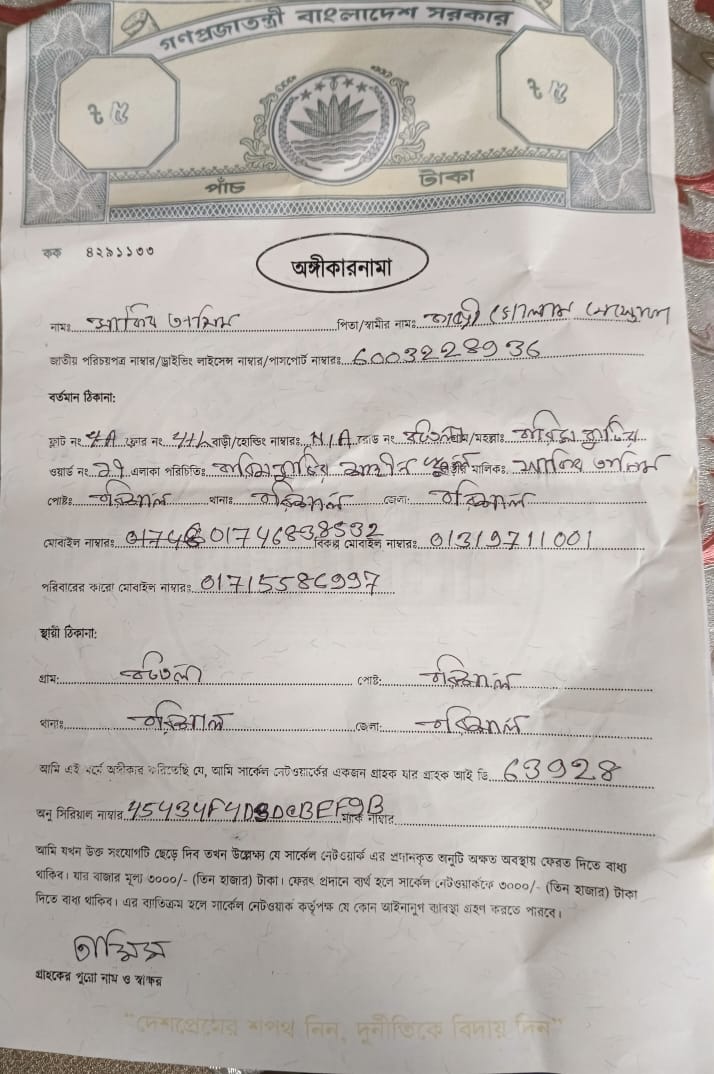 গণপ্রজাতন্ত্রী বাংলাদেশ সরকার
৳ ৫ ৳ ৫
পাঁচ টাকা
কক ৪২৯১১৩৩
অঙ্গীকারনামা
নামঃ পিতা/স্বামীর নামঃ কাজী
জাতীয় পরিচয়পত্র নাম্বার/ড্রাইভিং লাইসেন্স নাম্বার/পাসপোর্ট নাম্বারঃ 6003228936
বর্তমান ঠিকানা:
ফ্লাট নং 4A ফ্লোর নং 4th বাড়ী/হোল্ডিং নাম্বারঃ N/A রোড নং /মহল্লাঃ
ওয়ার্ড নং 29 এলাকা পরিচিতিঃ মালিকঃ
পোষ্টঃ বরিশাল থানাঃ বরিশাল জেলা: বরিশাল
মোবাইল নাম্বারঃ 01746838532 বিকল্প মোবাইল নাম্বারঃ 01319711001
পরিবারের কারো মোবাইল নাম্বারঃ 01715586997
স্থায়ী ঠিকানা:
গ্রাম: পোষ্ট: বরিশাল
থানাঃ বরিশাল জেলা: বরিশাল
আমি এই মর্মে অঙ্গীকার করিতেছি যে, আমি সার্কেল নেটওয়ার্কের একজন গ্রাহক যার গ্রাহক আই ডি 63928
অনু সিরিয়াল নাম্বার 45434F4D নাম্বার
আমি যখন উক্ত সংযোগটি ছেড়ে দিব তখন উল্লেখ্য যে সার্কেল নেটওয়ার্ক এর প্রদানকৃত অনুটি অক্ষত অবস্থায় ফেরত দিতে বাধ্য
থাকিব। যার বাজার মূল্য ৩০০০/- (তিন হাজার) টাকা। ফেরৎ প্রদানে ব্যর্থ হলে সার্কেল নেটওয়ার্ককে ৩০০০/- (তিন হাজার) টাকা
দিতে বাধ্য থাকিব। এর ব্যতিক্রম হলে সার্কেল নেটওয়ার্ক কর্তৃপক্ষ যে কোন আইনানুগ ব্যবস্থা গ্রহণ করতে পারবে।
গ্রাহকের পুরো নাম ও স্বাক্ষর
"দেশপ্রেমের শপথ নিন, দুর্নীতিকে বিদায় দিন"